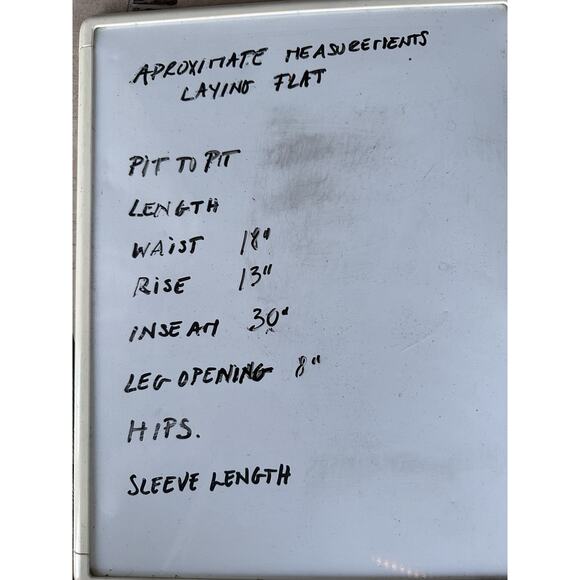 APROXIMATE MEASUREMENTS
LAYING FLAT
PIT TO PIT
LENGTH
WAIST 18"
RISE 13"
INSEAM 30"
LEG OPENING 8"
HIPS.
SLEEVE LENGTH